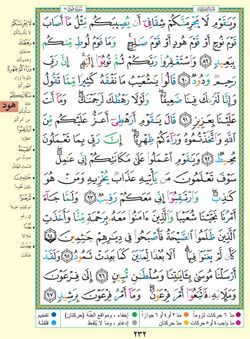 وَيَٰقَوْمِ لَا يَجْرِمَنَّكُمْ شِقَاقِىٓ أَن يُصِيبَكُم مِّثْلُ مَآ أَصَابَ
قَوْمَ نُوحٍ أَوْ قَوْمَ هُودٍ أَوْ قَوْمَ صَٰلِحٍ ۚ وَمَا قَوْمُ لُوطٍ مِّنكُم
بِبَعِيدٍ ٨٩ وَٱسْتَغْفِرُوا۟ رَبَّكُمْ ثُمَّ تُوبُوٓا۟ إِلَيْهِ ۚ إِنَّ رَبِّى
رَحِيمٌ وَدُودٌ ٩٠ قَالُوا۟ يَٰشُعَيْبُ مَا نَفْقَهُ كَثِيرًا مِّمَّا تَقُولُ
وَإِنَّا لَنَرَىٰكَ فِينَا ضَعِيفًا ۖ وَلَوْلَا رَهْطُكَ لَرَجَمْنَٰكَ ۖ وَمَآ
أَنتَ عَلَيْنَا بِعَزِيزٍ ٩١ قَالَ يَٰقَوْمِ أَرَهْطِىٓ أَعَزُّ عَلَيْكُم مِّنَ
ٱللَّهِ وَٱتَّخَذْتُمُوهُ وَرَآءَكُمْ ظِهْرِيًّا ۖ إِنَّ رَبِّى بِمَا تَعْمَلُونَ
مُحِيطٌ ٩٢ وَيَٰقَوْمِ ٱعْمَلُوا۟ عَلَىٰ مَكَانَتِكُمْ إِنِّى عَٰمِلٌ ۖ
سَوْفَ تَعْلَمُونَ مَن يَأْتِيهِ عَذَابٌ يُخْزِيهِ وَمَنْ هُوَ
كَٰذِبٌ ۖ وَٱرْتَقِبُوٓا۟ إِنِّى مَعَكُمْ رَقِيبٌ ٩٣ وَلَمَّا جَآءَ
أَمْرُنَا نَجَّيْنَا شُعَيْبًا وَٱلَّذِينَ ءَامَنُوا۟ مَعَهُۥ بِرَحْمَةٍ مِّنَّا وَأَخَذَتِ
ٱلَّذِينَ ظَلَمُوا۟ ٱلصَّيْحَةُ فَأَصْبَحُوا۟ فِى دِيَٰرِهِمْ جَٰثِمِينَ ٩٤
كَأَن لَّمْ يَغْنَوْا۟ فِيهَآ ۗ أَلَا بُعْدًا لِّمَدْيَنَ كَمَا بَعِدَتْ ثَمُودُ ٩٥ وَلَقَدْ
أَرْسَلْنَا مُوسَىٰ بِـَٔايَٰتِنَا وَسُلْطَٰنٍ مُّبِينٍ ٩٦ إِلَىٰ فِرْعَوْنَ
وَمَلَإِي۟هِۦ فَٱتَّبَعُوٓا۟ أَمْرَ فِرْعَوْنَ ۖ وَمَآ أَمْرُ فِرْعَوْنَ بِرَشِيدٍ ٩٧
هود
٢٣٢